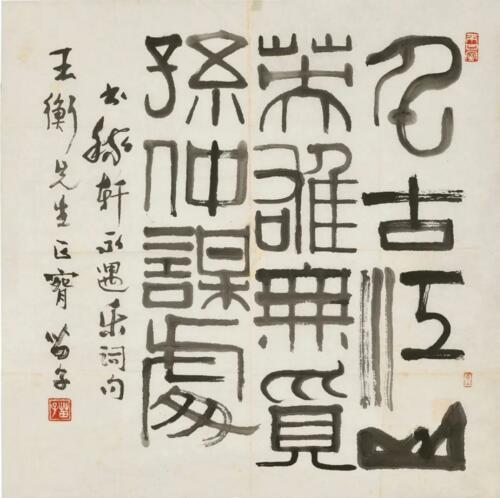 千古江山
英雄無覓
孫仲謀處
书稼軒永遇乐詞句
王衡先生 苗子
苗子